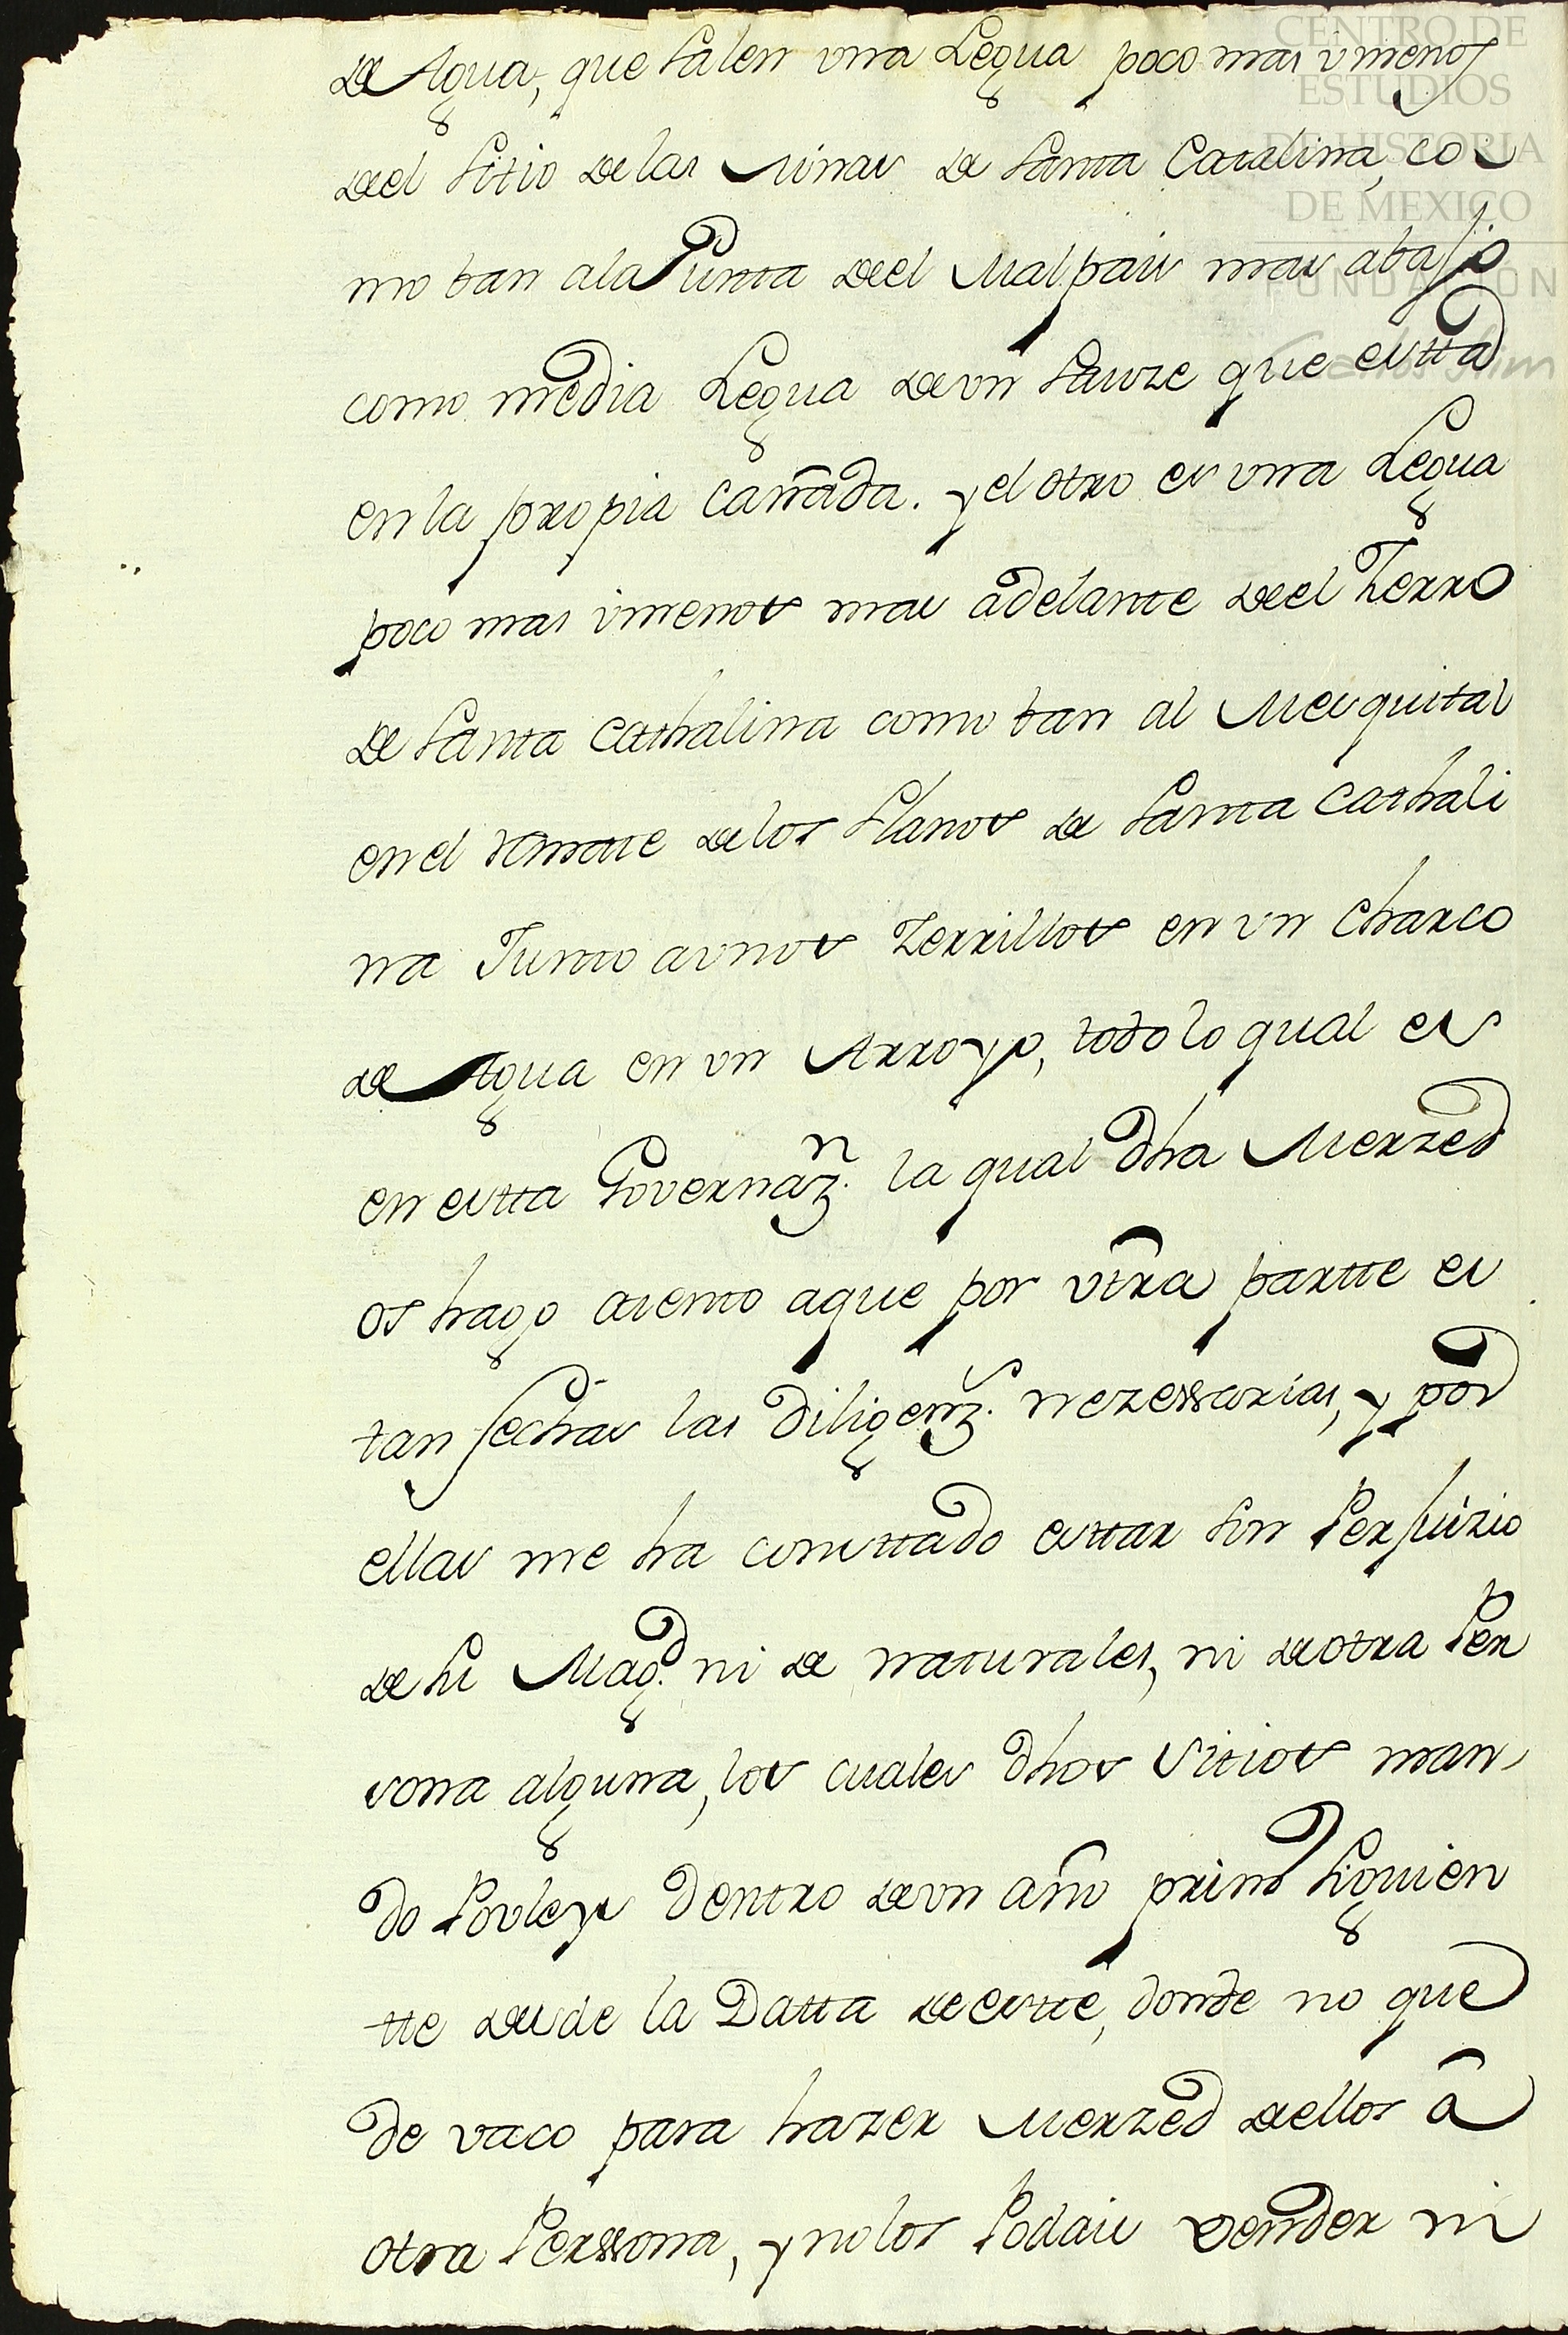 de Agua, que salen vna Legua poco mas ỏmenos
del Sitio delas Minas de Santa Catalina, co
mo ban ala Punta del Malpais mas abajo
como media Legua de vn Sauze que estta
en la propia Cañada. y el otro es vna Legua
poco mas ỏmenos mas adelante deel Zerro
de Santa Cathalina como ban al Mesquital
en el rematte delos Llanos de Santa Cathali
na Junto avnos Zerrillos en vn Charco
de Agua en vn Arroyo, todo lo qual es
en estta Governaz.n la qual dha Merzed
os hago atento aque por vtra partte es
tan fechas las diligenz.s nezessarias, y por
ellas me ha consttado esttar sin Perjuizio
de Su Mag.d ni de naturales, ni de otra Per
sona alguna, los cuales dhos Sitios man
do Pobleys dentro de vn año primo Siguien
tte desde la Datta de estte, donde no que
de vaco para hazer Merzed dellos â
otra Perssona, y nolos Podais vender ni
CENTRO DE
ESTUDIOS
DE HISTORIA
DE MEXICO
FUNDACIÓN
Carlos Slim